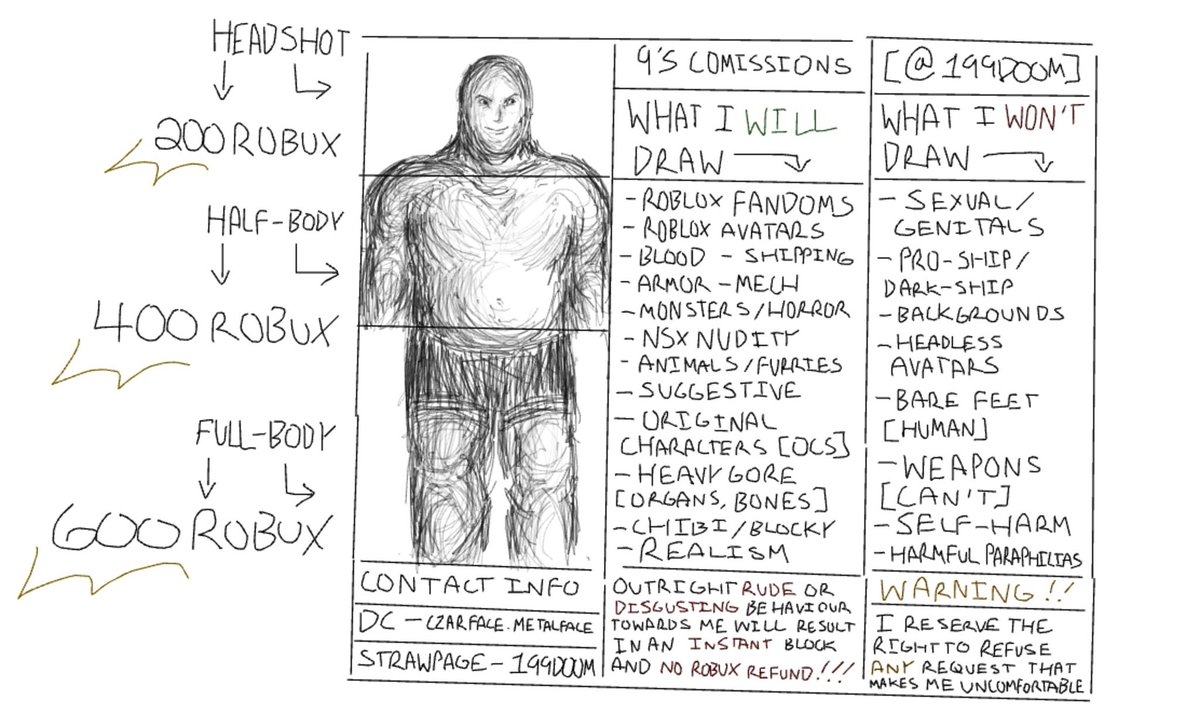 HEADSHOT
200 ROBUX
HALF-BODY
400 ROBUX
FULL-BODY
600 ROBUX
CONTACT INFO
DC - CZARFACE.METALFACE
STRAWPAGE - 199DOOM
9'S COMISSIONS
WHAT I WILL
DRAW
- ROBLOX FANDOMS
- ROBLOX AVATARS
- BLOOD - SHIPPING
- ARMOR - MECH
- MONSTERS/HORROR
- NSX NUDITY
- ANIMALS/FURRIES
- SUGGESTIVE
- ORIGINAL
CHARACTERS [OCS]
- HEAVY GORE
[ORGANS, BONES]
- CHIBI/BLOCKY
- REALISM
OUTRIGHT RUDE OR
DISGUSTING BEHAVIOUR
TOWARDS ME WILL RESULT
IN AN INSTANT BLOCK
AND NO ROBUX REFUND!!!
[@199DOOM]
WHAT I WON'T
DRAW
- SEXUAL/
GENITALS
- PRO-SHIP/
DARK-SHIP
- BACKGROUNDS
- HEADLESS
AVATARS
- BARE FEET
[HUMAN]
- WEAPONS
[CAN'T]
- SELF-HARM
- HARMFUL PARAPHILIAS
WARNING!!
I RESERVE THE
RIGHT TO REFUSE
ANY REQUEST THAT
MAKES ME UNCOMFORTABLE